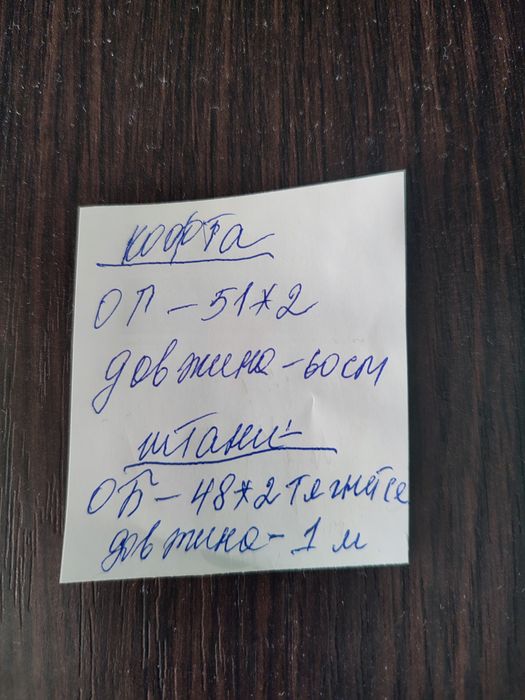 кофта
ОГ - 51*2
довжина - 60см
штани -
ОБ - 48*2 тягнется
довжина - 1 м